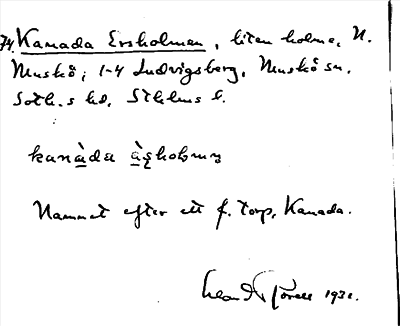 74 Kanada Ersholmen, liten holme, N.
Muskö; 1-4 Ludvigsberg, Muskö sn.
Soth.s hd, Sthlms l.
kanàda àşholmen
Namnet efter ett f. torp, Kanada.
1932.